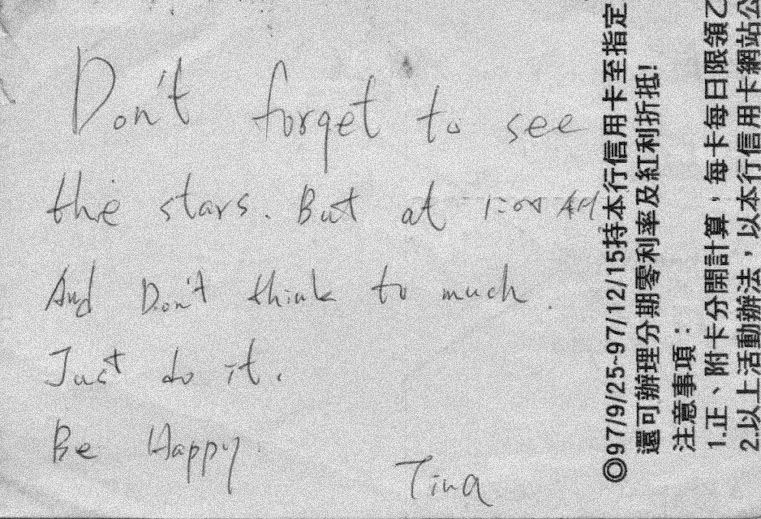 Don't forget to see
the stars. But at 1:00 AM
And Don't think to much.
Just do it.
Be Happy.
Tina
◎97/9/25~97/12/15持本行信用卡至指定
還可辦理分期零利率及紅利折抵!
注意事項：
1.正、附卡分開計算，每卡每日限領乙
2.以上活動辦法，以本行信用卡網站公